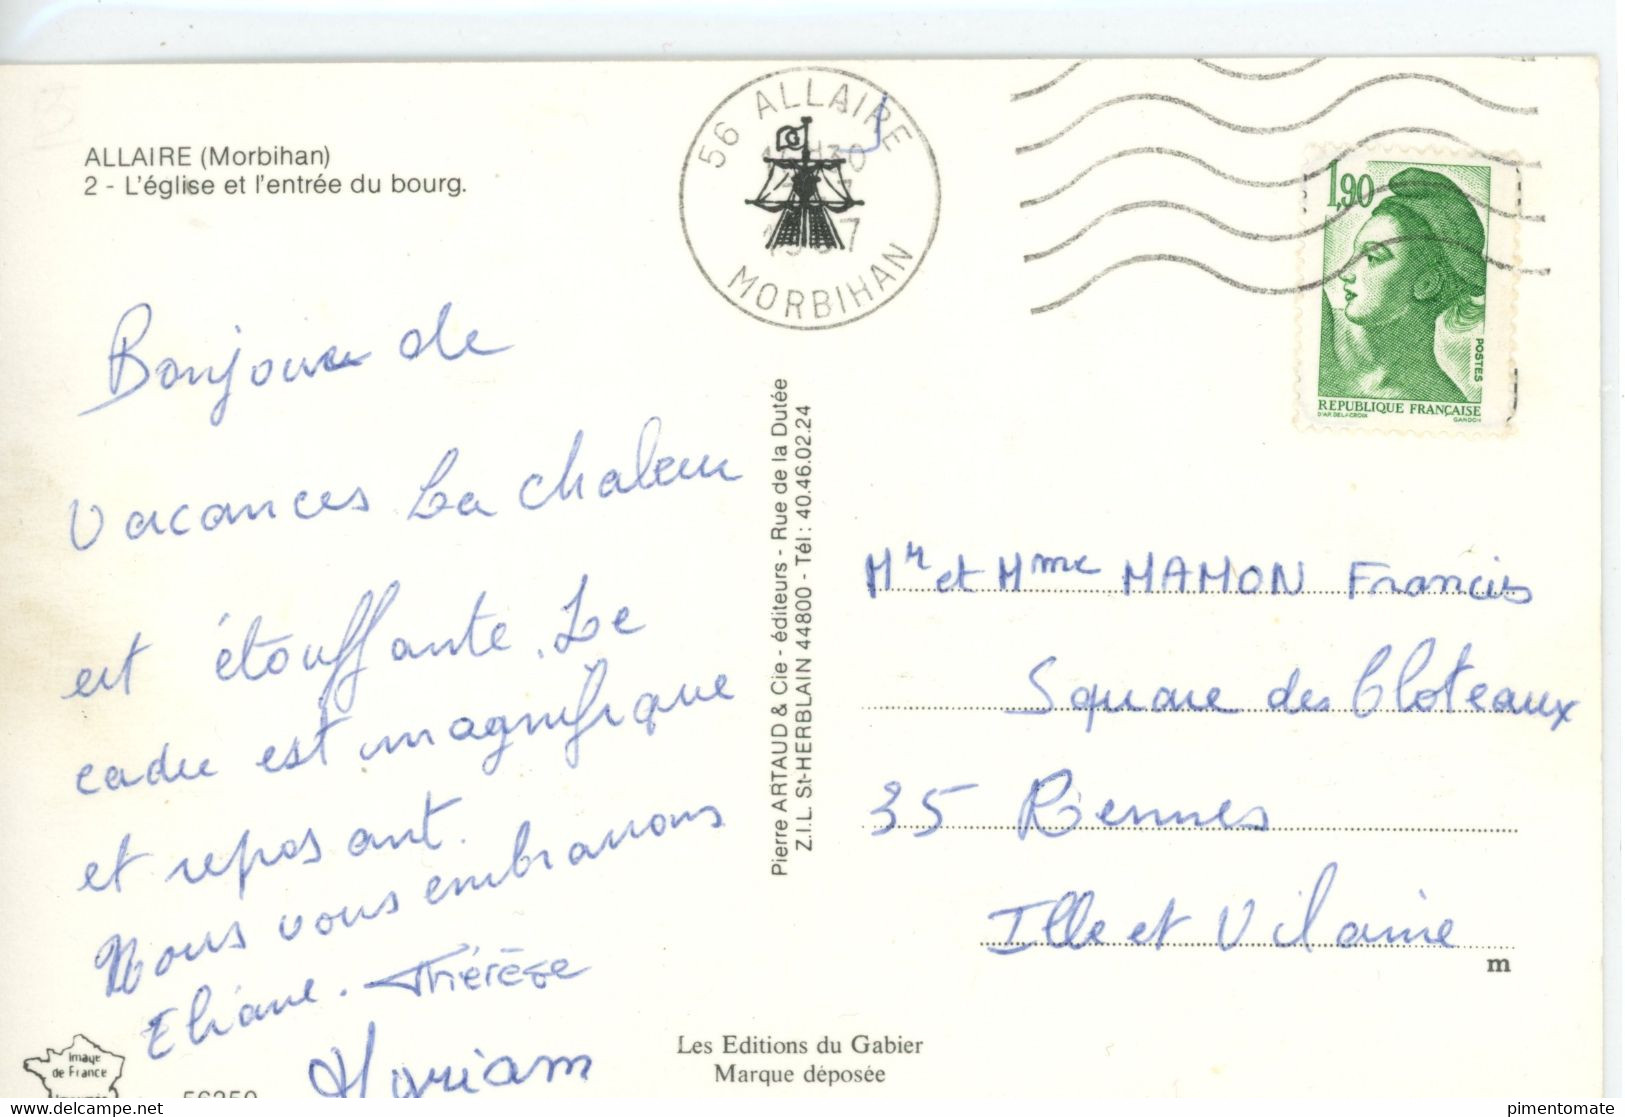 ALLAIRE (Morbihan)
2 - L'église et l'entrée du bourg.
56 ALLAIRE
MORBIHAN
1,90
POSTES
REPUBLIQUE FRANÇAISE
D'AP. DELACROIX GANDON
Bonjour de
vacances La chaleur
est étouffante. Le
cadre est magnifique
et reposant.
Nous vous embrassons
Eliane. Thérèse
Myriam
Pierre ARTAUD & Cie - éditeurs - Rue de la Dutée
Z.I.L. St-HERBLAIN 44800 - Tél : 40.46.02.24
Mr et Mme MAMON Francis
Square des Cloteaux
35 Rennes
Ille et Vilaine
m
Les Editions du Gabier
Marque déposée
Image
de France
pimentomate